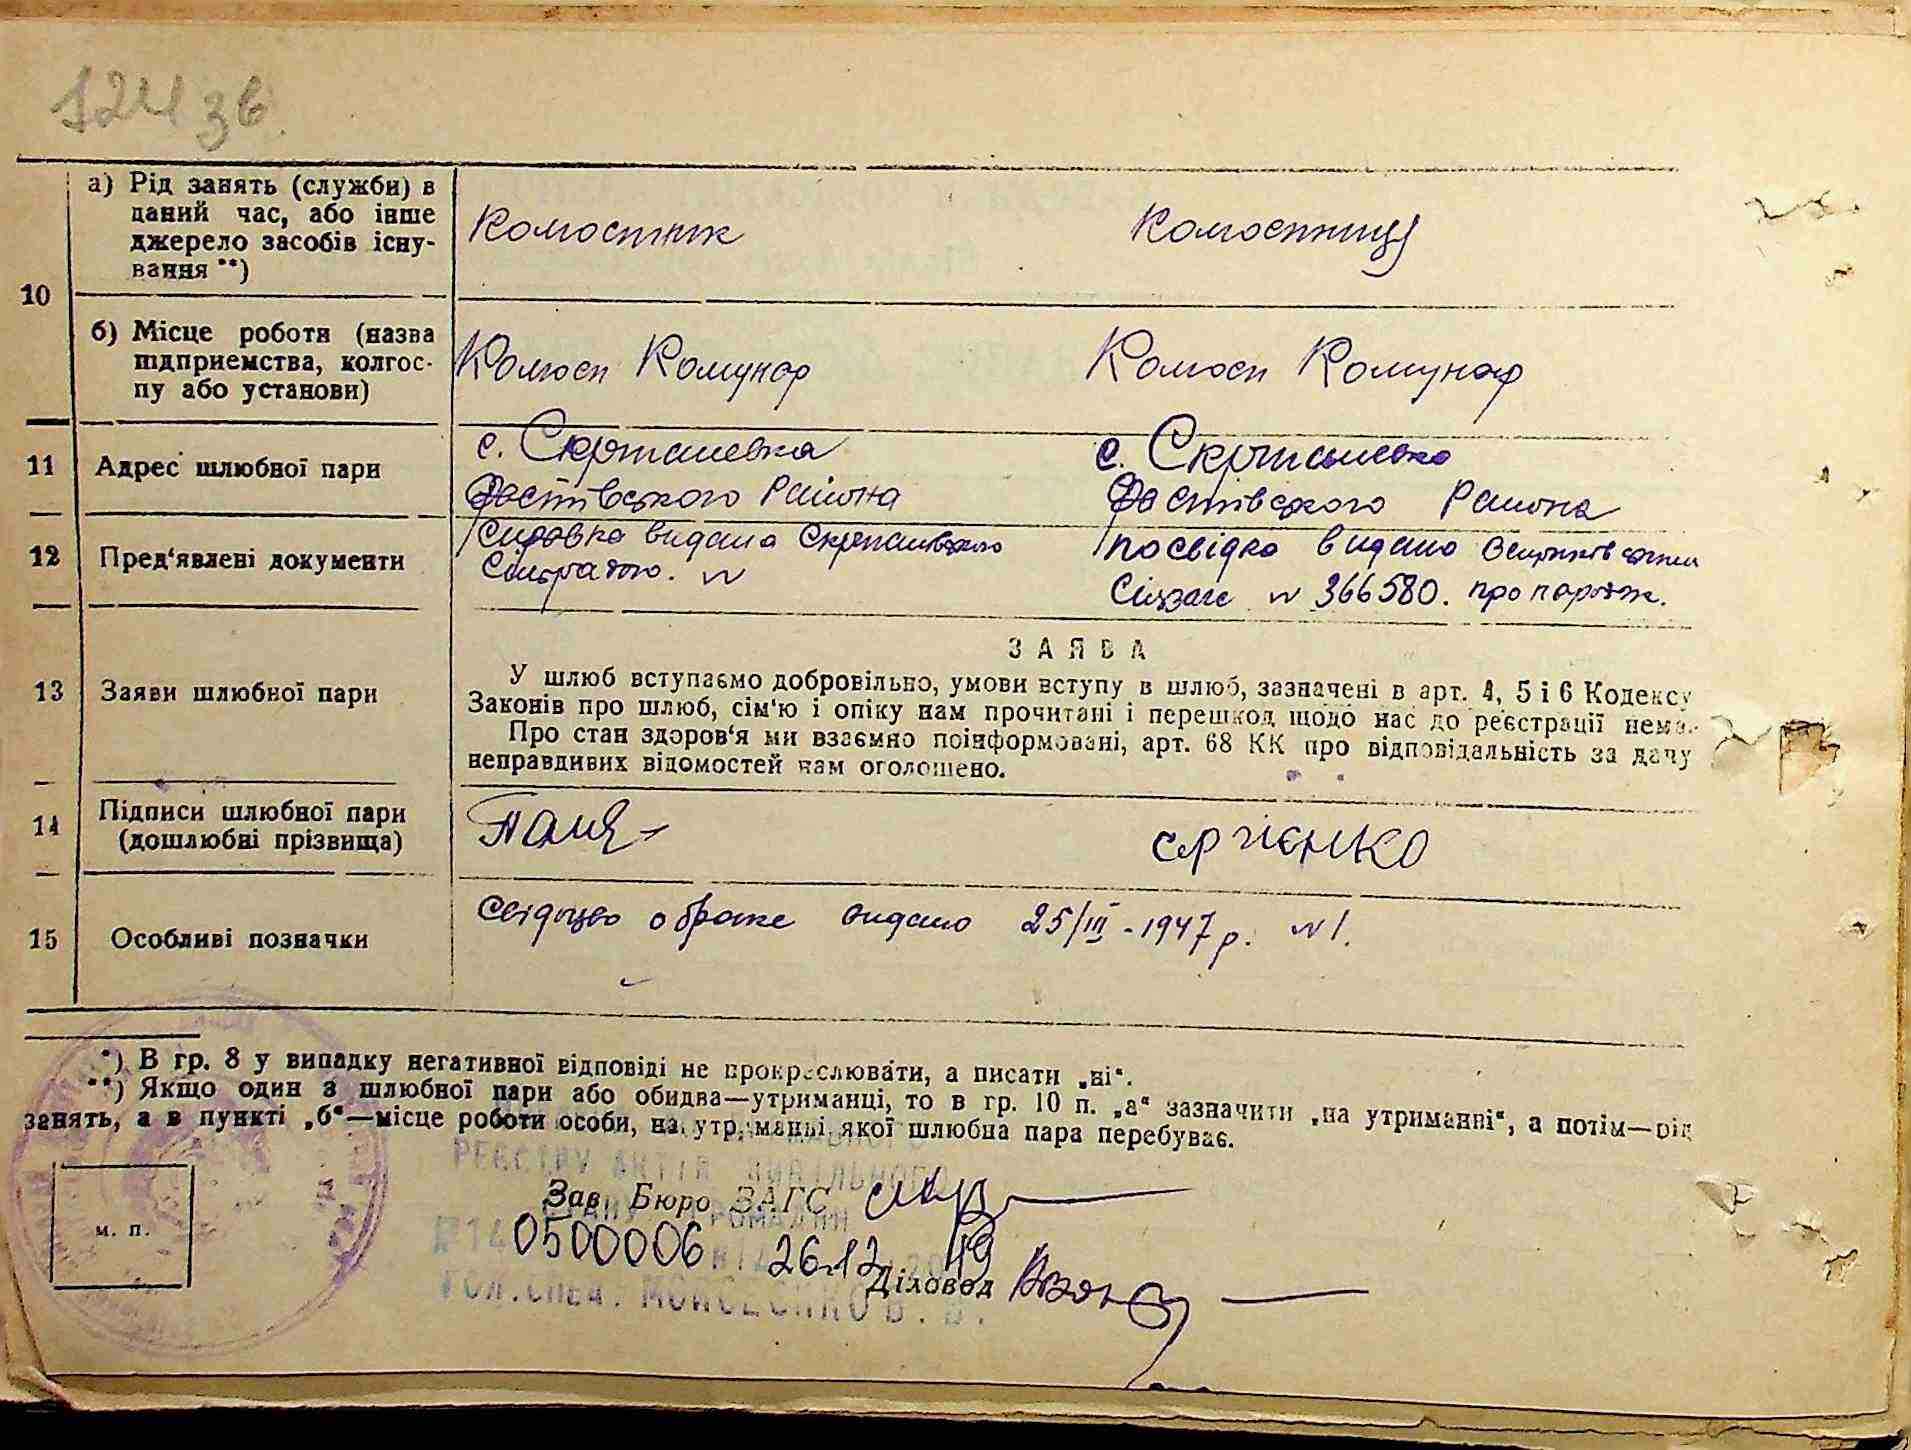 124 зв.
а) Рід занять (служби) в
даний час, або інше
джерело засобів існу-
вання **)
Колгоспник
Колгоспниця
10
б) Місце роботи (назва
підприємства, колгос-
пу або установи)
Колгосп Комунар
Колгосп Комунар
11
Адрес шлюбної пари
с. Скрипалевка
Фастівського Района
с. Скрипалевка
Фастівського Района
12
Пред'явлені документи
Справка видана
Сільрадою. №
посвідка видано
№ 366580. про народж.
ЗАЯВА
13
Заяви шлюбної пари
У шлюб вступаємо добровільно, умови вступу в шлюб, зазначені в арт. 4, 5 і 6 Кодексу
Законів про шлюб, сім'ю і опіку нам прочитані і перешкод щодо нас до реєстрації нема.
Про стан здоров'я ми взаємно поінформовані, арт. 68 КК про відповідальність за дачу
неправдивих відомостей нам оголошено.
14
Підписи шлюбної пари
(дошлюбні прізвища)
сергієнко
15
Особливі позначки
видано 25/III-1947 р. № 1.
*) В гр. 8 у випадку негативної відповіді не прокреслювати, а писати „ні“.
**) Якщо один з шлюбної пари або обидва—утриманці, то в гр. 10 п. „а“ зазначити „на утриманні“, а потім—рід
занять, а в пункті „б“—місце роботи особи, на утриманні якої шлюбна пара перебуває.
РЕЄСТРУ АКТІВ ЦИВІЛЬНОГО
СТАНУ ГРОМАДЯН
Зав. Бюро ЗАГС
0500006 26.12 19
м. п.
Діловод
ГОЛ.СПЕЦ. МОЙСЕЄНКО В. В.